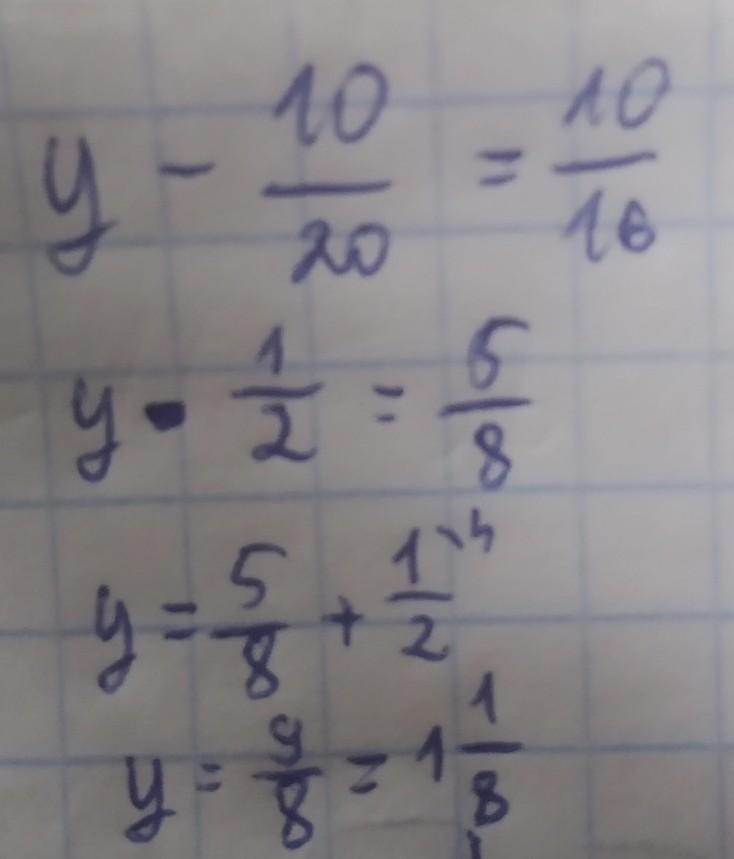 y - 10/20 = 10/16
y - 1/2 = 5/8
y = 5/8 + 1\4/2
y = 9/8 = 1 1/8